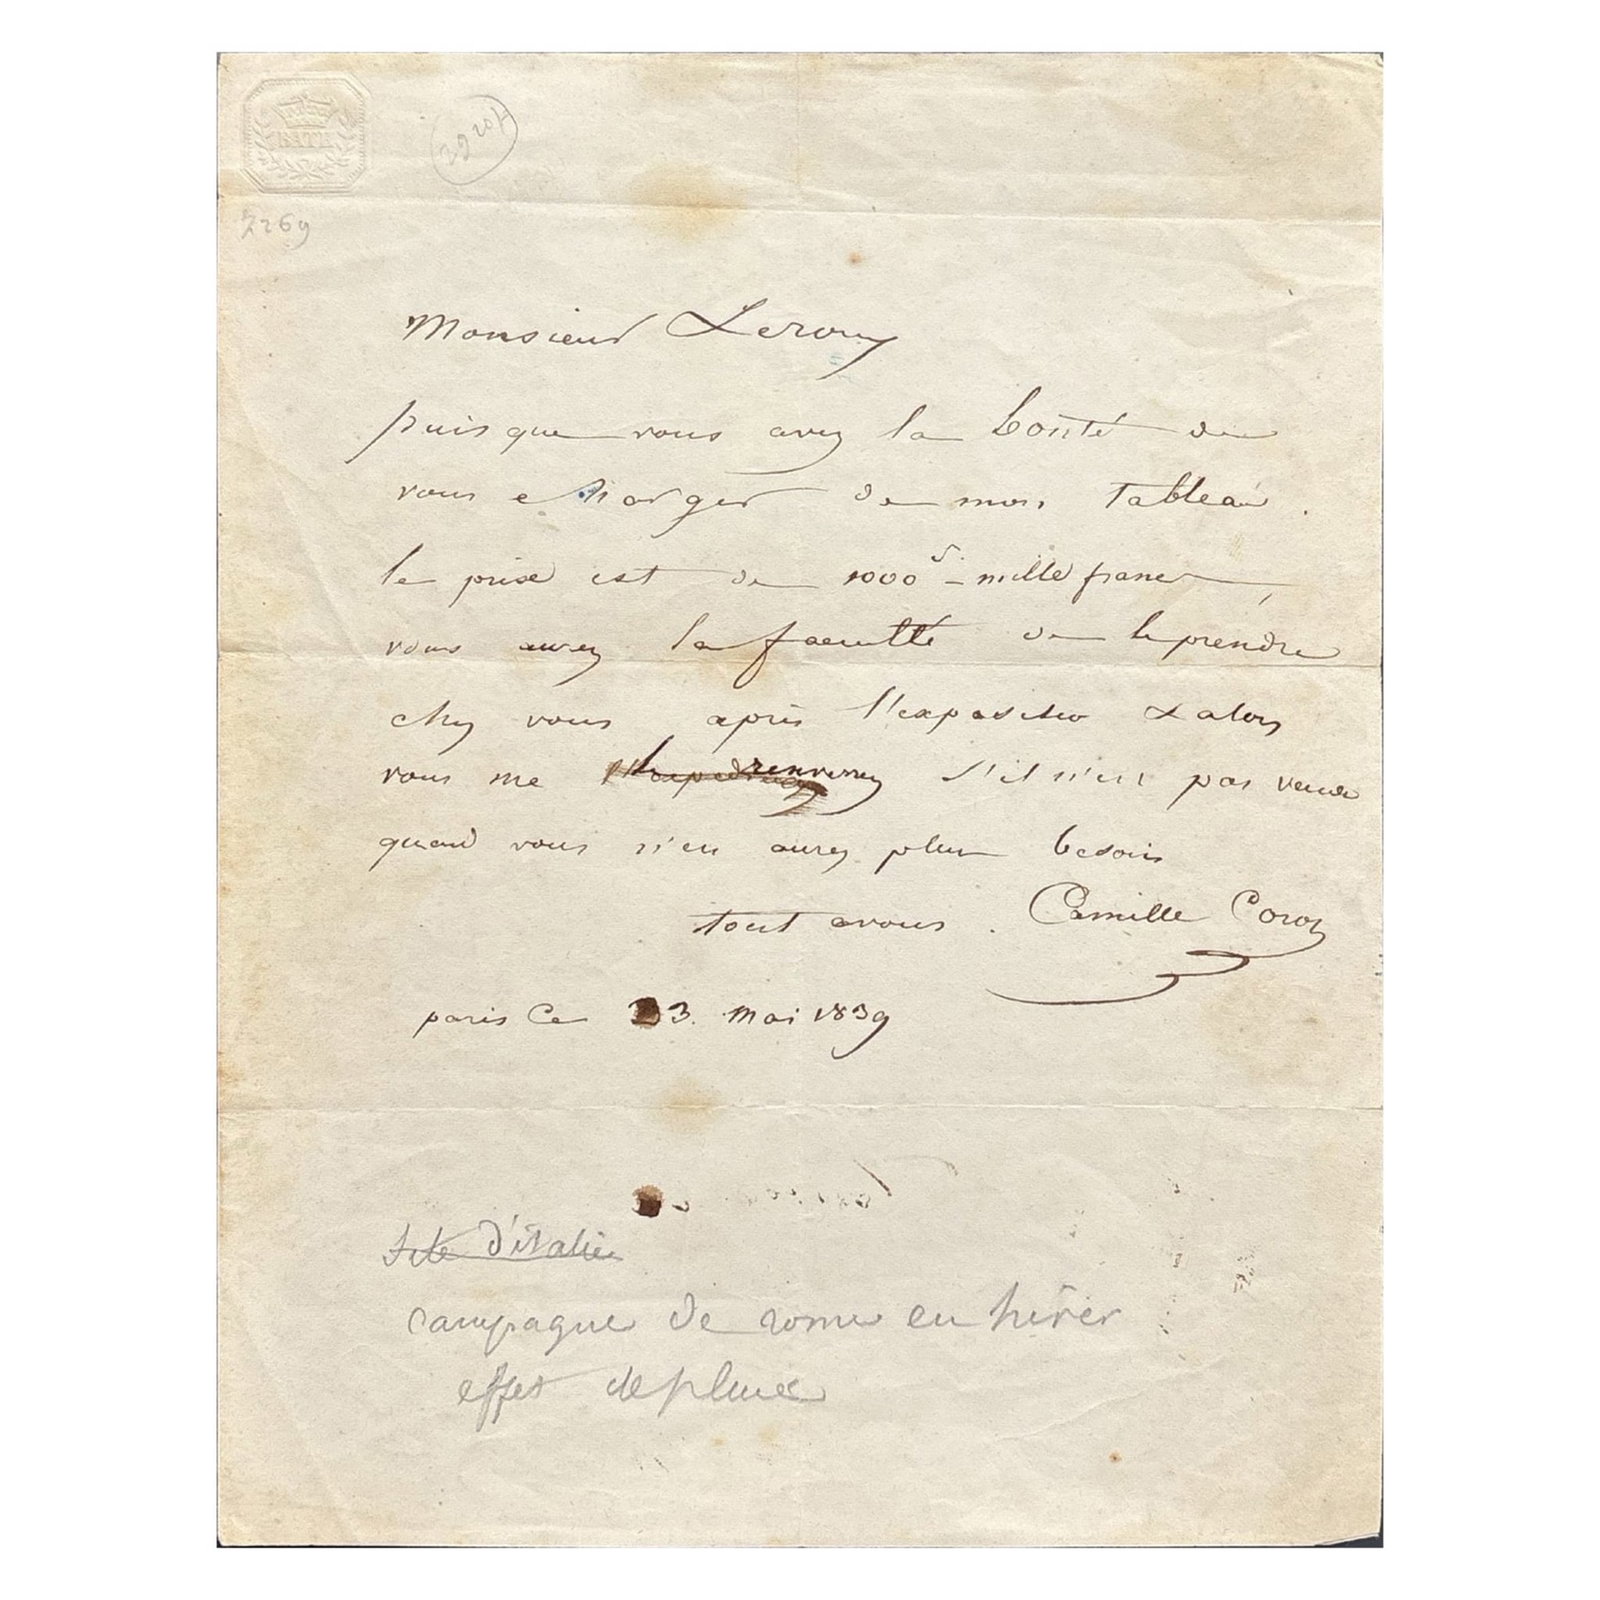 BATH
2269
Monsieur Leroy
puisque vous avez la bonté de
vous charger de mon tableau.
le prix est de 1000 f - mille francs,
vous aurez la faculté de le prendre
chez vous après l'expositio & alors
vous me le renverrez s'il n'est pas vendu
quand vous n'en aurez plus besoin
tout avous. Camille Corot
paris Ce 23. mai 1839
site d'italie
campagne de rome en hiver
effet de pluie